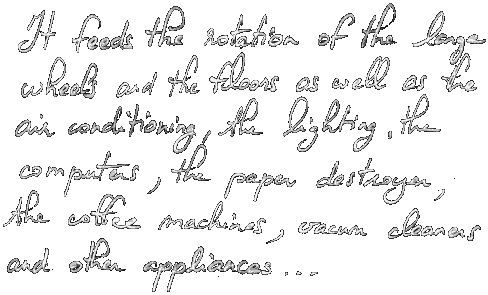 It feeds the rotation of the large
wheels and the floors as well as the
air conditioning, the lighting, the
computers, the paper destroyer,
the coffee machines, vacum cleaners
and other appliances ...